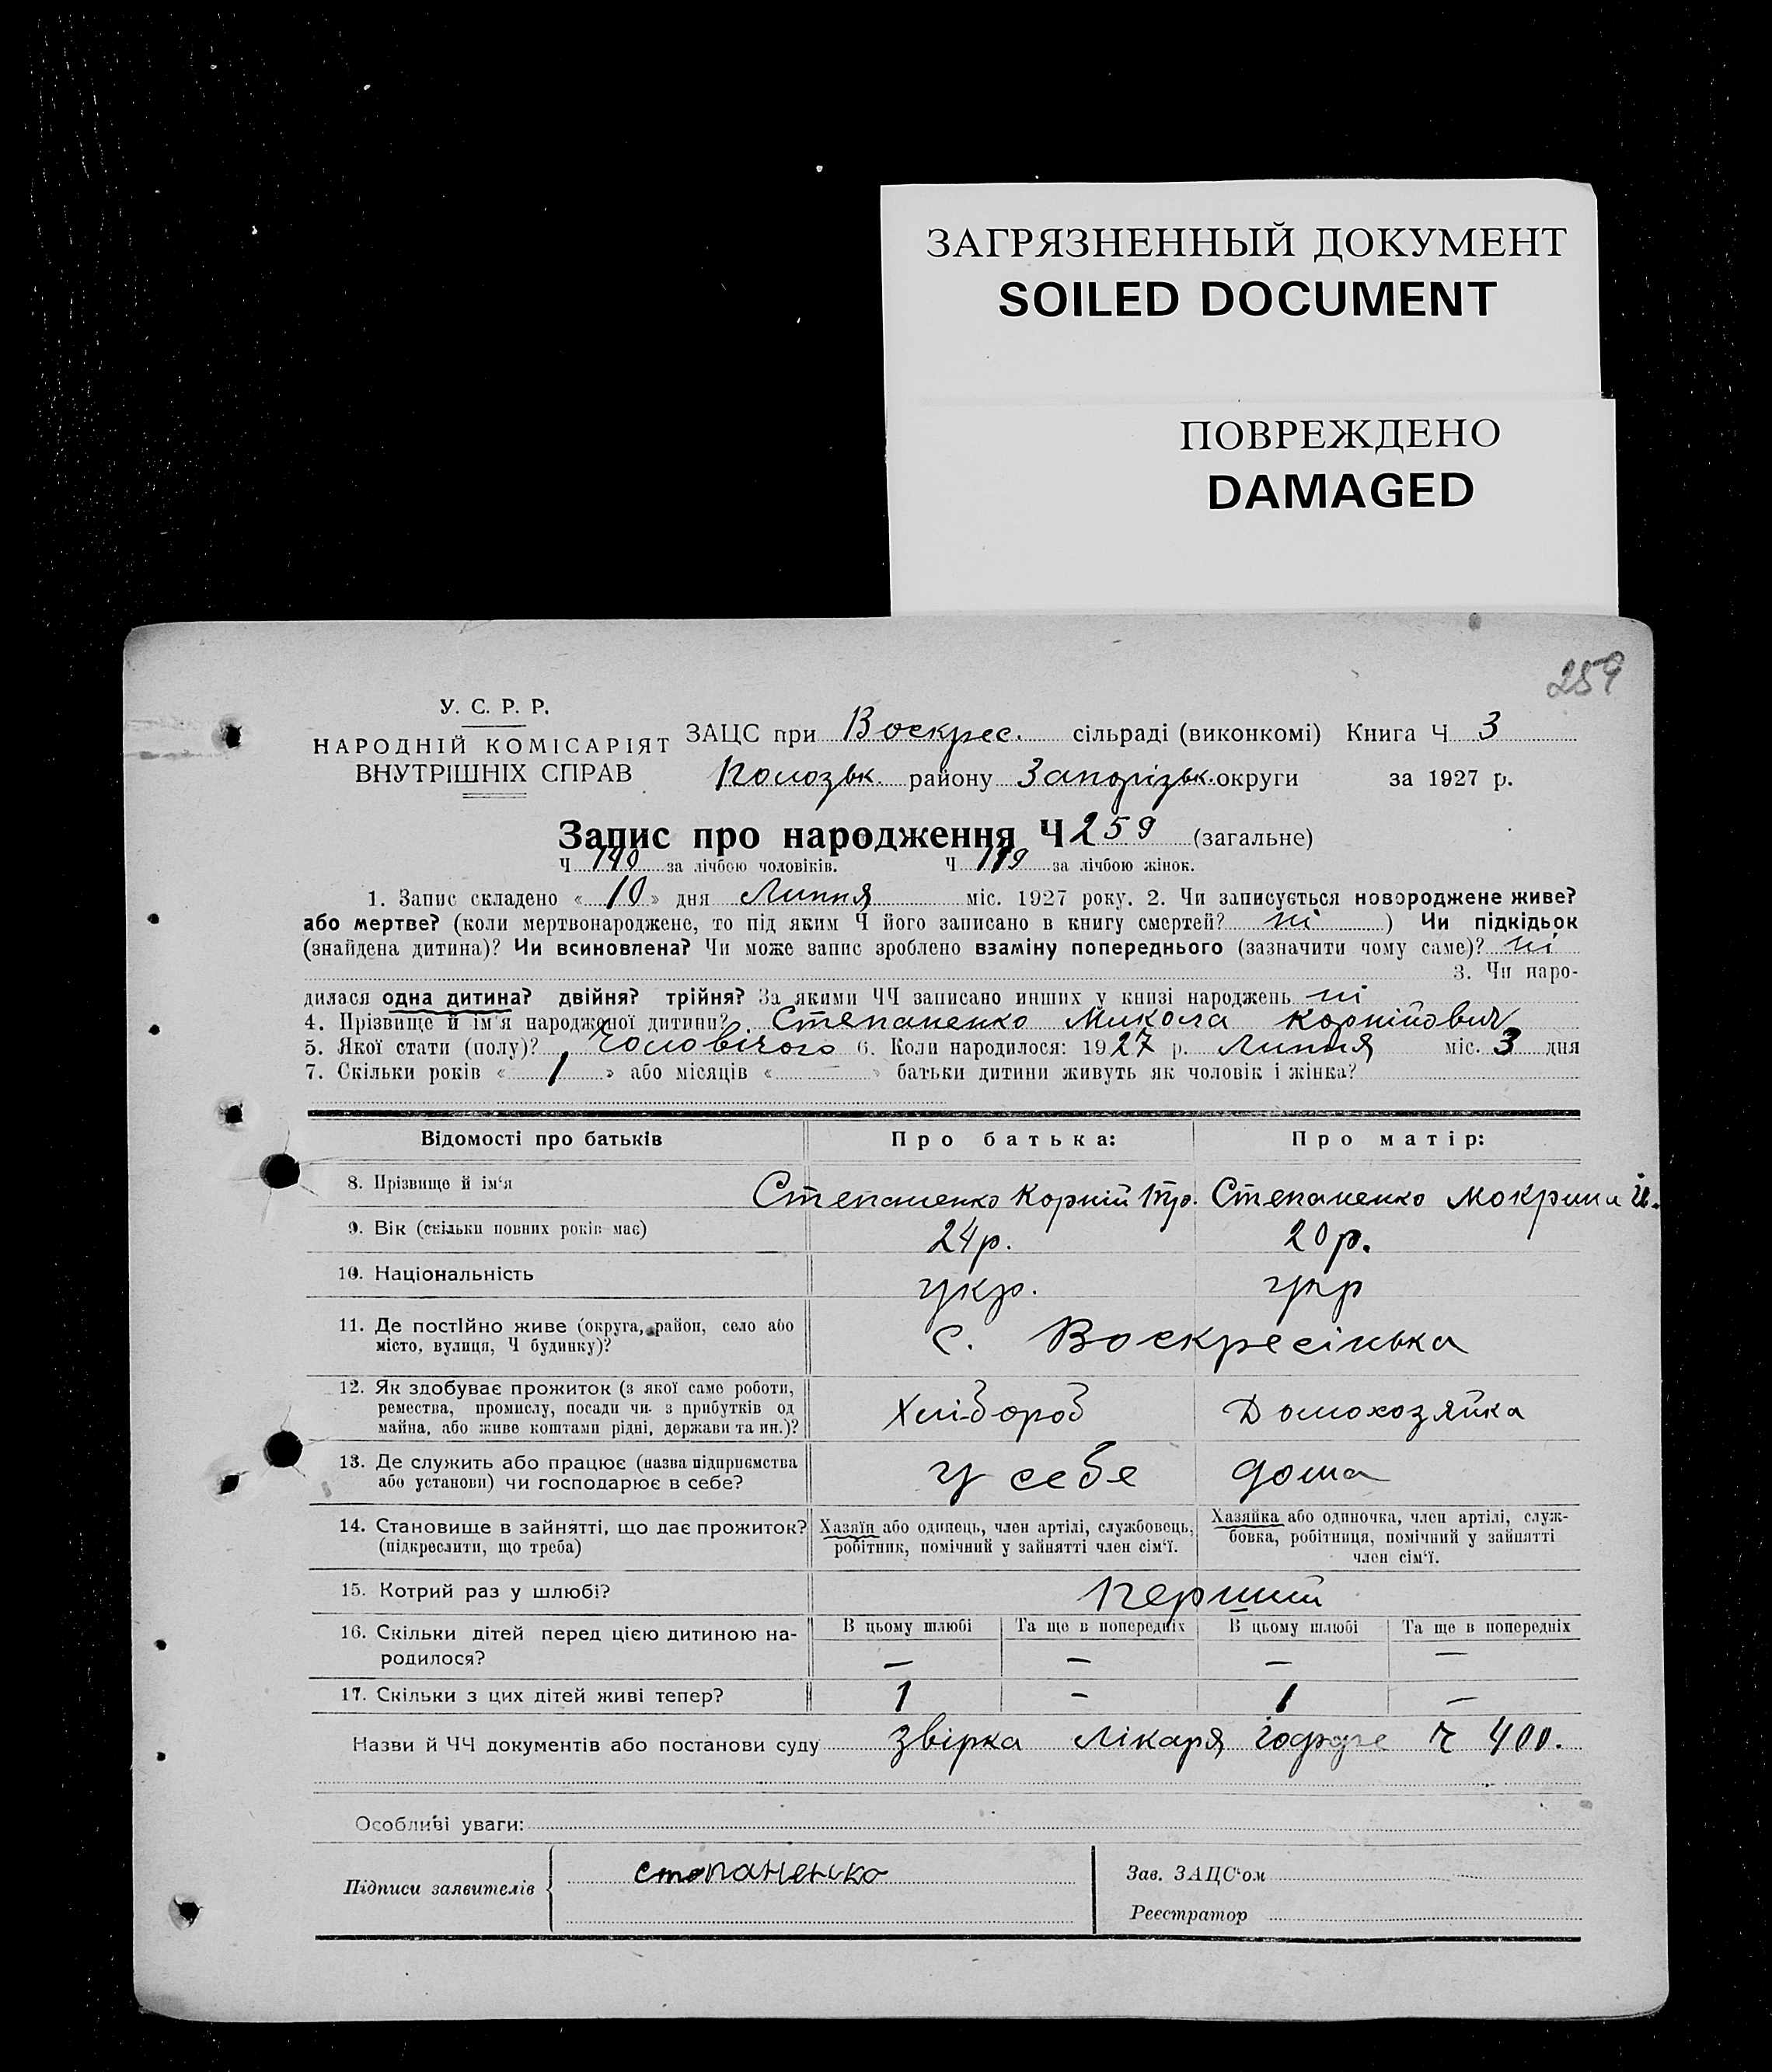 ЗАГРЯЗНЕННЫЙ ДОКУМЕНТ
SOILED DOCUMENT
ПОВРЕЖДЕНО
DAMAGED
259
У. С. Р. Р.
НАРОДНІЙ КОМІСАРІЯТ
ВНУТРІШНІХ СПРАВ
ЗАЦС при Воскрес. сільраді (виконкомі) Книга Ч 3
Пологзьк. району Запорізьк. округи за 1927 р.
Запис про народження Ч 259 (загальне)
Ч 140 за лічбою чоловіків. Ч 119 за лічбою жінок.
1. Запис складено « 10 » дня Липня міс. 1927 року. 2. Чи записується новороджене живе?
або мертве? (коли мертвонароджене, то під яким Ч його записано в книгу смертей? ні ) Чи підкідьок
(знайдена дитина)? Чи всиновлена? Чи може запис зроблено взаміну попереднього (зазначити чому саме)? ні
3. Чи наро-
дилася одна дитина? двійня? трійня? За якими ЧЧ записано инших у книзі народжень ні
4. Прізвище й ім'я народженої дитини? Степаненко Микола Корнійович
5. Якої стати (полу)? Чоловічого 6. Коли народилося: 1927 р. Липня міс. 3 дня
7. Скільки років « 1 » або місяців « — » батьки дитини живуть як чоловік і жінка?
Відомості про батьків Про батька: Про матір:
8. Прізвище й ім'я Степаненко Корній Тр. Степаненко Мокрина Й.
9. Вік (скільки повних років має) 24р. 20р.
10. Національність укр. укр
11. Де постійно живе (округа, район, село або
місто, вулиця, Ч будинку)? с. Воскресінька
12. Як здобуває прожиток (з якої саме роботи,
ремества, промислу, посади чи з прибутків од
майна, або живе коштами рідні, держави та ин.)? Хлібороб Домохозяйка
13. Де служить або працює (назва підприємства
або установи) чи господарює в себе? у себе дома
14. Становище в зайнятті, що дає прожиток?
(підкреслити, що треба)
Хазяїн або одинець, член артілі, службовець,
робітник, помічний у зайнятті член сім'ї.
Хазяйка або одиночка, член артілі, служ-
бовка, робітниця, помічний у зайнятті
член сім'ї.
15. Котрий раз у шлюбі? перший
16. Скільки дітей перед цією дитиною на-
родилося?
В цьому шлюбі Та ще в попередніх В цьому шлюбі Та ще в попередніх
— — — —
17. Скільки з цих дітей живі тепер? 1 — 1 —
Назви й ЧЧ документів або постанови суду звірка лікаря Ч 400.
Особливі уваги:
Підписи заявителів степаненко
Зав. ЗАЦС'ом
Реєстратор